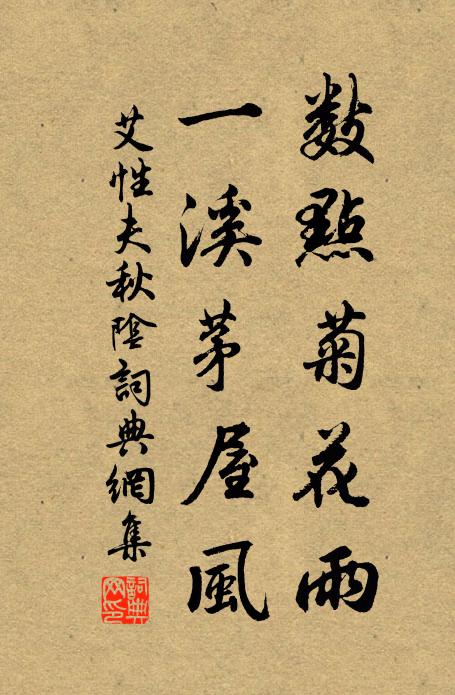 數點菊花雨
一溪茅屋風
艾性夫秋陰詞典網集
詞典
网印